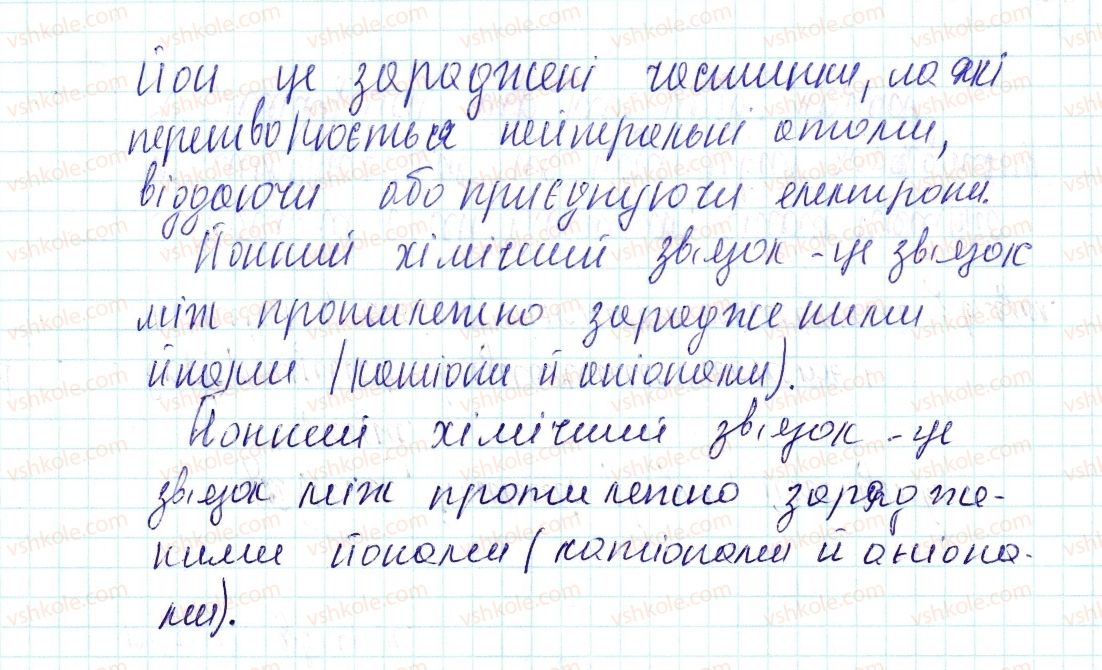 Йон це зараджені частинки, на які
перетворюється нейтральні атоми,
віддаючи або приєднуючи електрони.
Йонний хімічний зв'язок - це зв'язок
між протилежно зарадженими
йнами (катіони й аніонами).
Йонний хімічний зв'язок - це
зв'язок між протилежно зарядже-
ними йонами (катіонами й аніона-
ми).